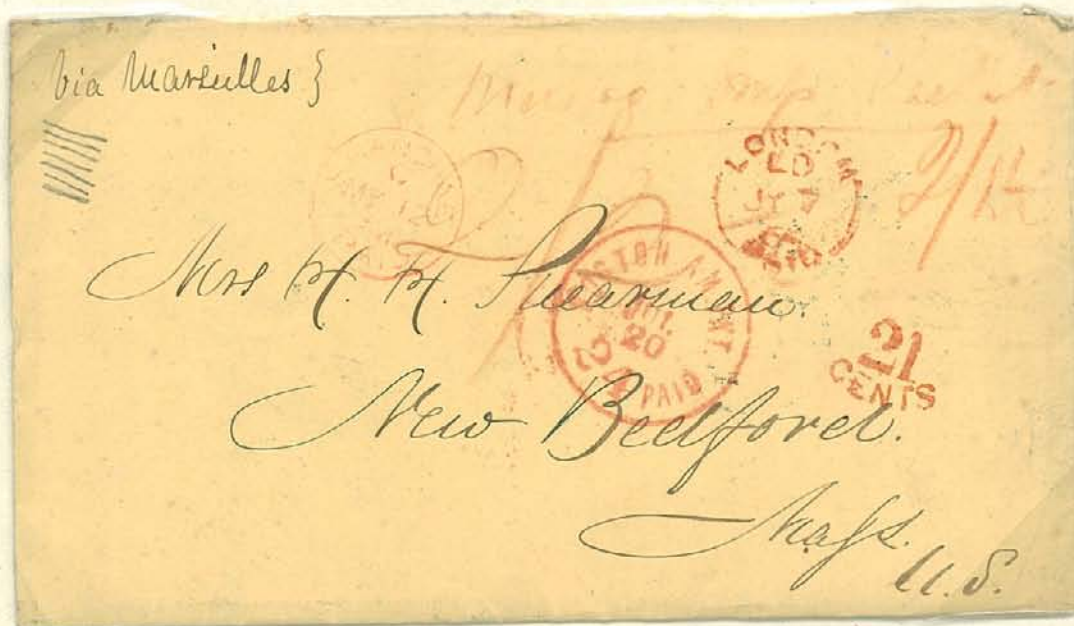 Via Marseilles }
LONDON
JY 7
PAID
2/
BOSTON AM. PKT.
JUL
20
PAID
21
CENTS
Mrs H. H. Shearman.
New Bedford.
Mass.
U.S.